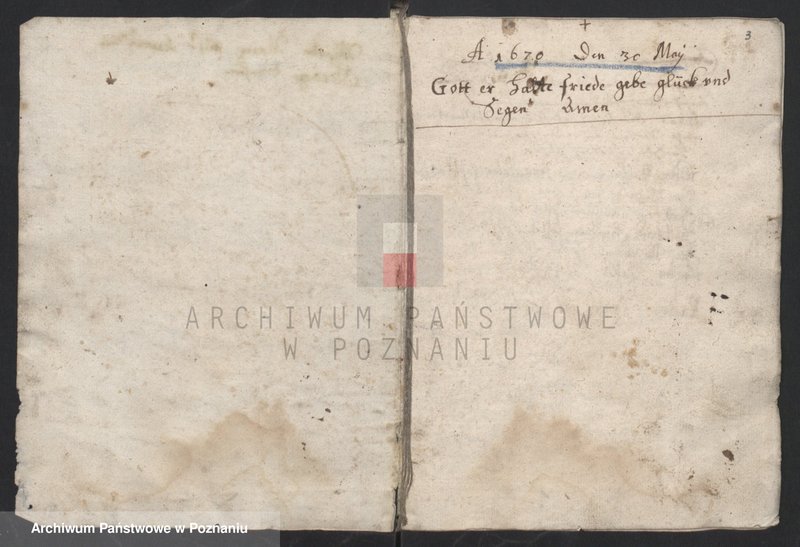 3
+
A 1670 Den 30 Maÿ
Gott er halte friede gebe glück vnd
Segen Amen
ARCHIWUM PAŃSTWOWE
W POZNANIU
Archiwum Państwowe w Poznaniu